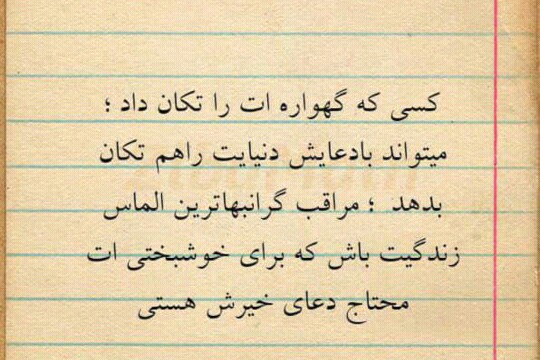 کسی که گهواره ات را تکان داد ؛
میتواند بادعایش دنیایت راهم تکان
بدهد ؛ مراقب گرانبهاترین الماس
زندگیت باش که برای خوشبختی ات
محتاج دعای خیرش هستی